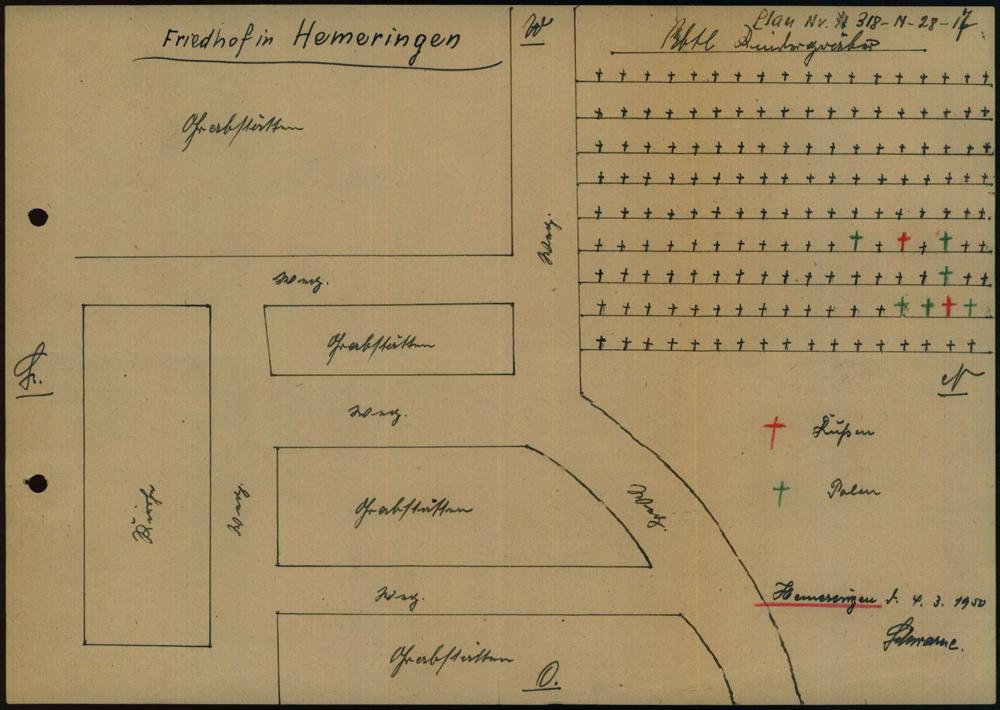 Plan Nr. 318-N-28-17
Friedhof in Hemeringen
W
Abtl Kindergräber
Grabstätten
Weg.
Weg.
Grabstätten
N
S.
Weg.
Rußen
Kirche
Weg.
Grabstätten
Weg.
Polen
Weg.
Hemeringen d. 4. 3. 1950
Grabstätten
O.